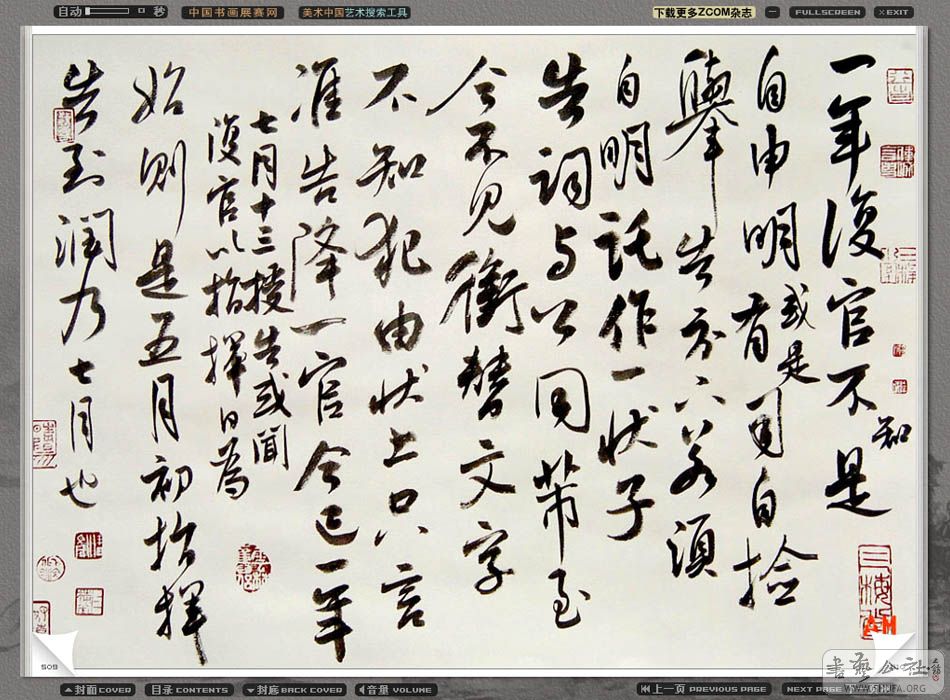 自动 秒
中国书画展赛网
美术中国艺术搜索工具
下载更多ZCOM杂志
FULLSCREEN
EXIT
一年復官不知是
自申明或是有司自撿
舉告示若須
自明託作一狀子
告詞与公同帶至
今不見銜替文字
不知犯由狀上只言
准告降一官今已一年
七月十三授告或聞
復官以指揮日為
始則是五月初指揮
告到潤乃七月也
509
封面 COVER
目录 CONTENTS
封底 BACK COVER
音量 VOLUME
上一页 PREVIOUS PAGE
NEXT PAGE
书艺公社